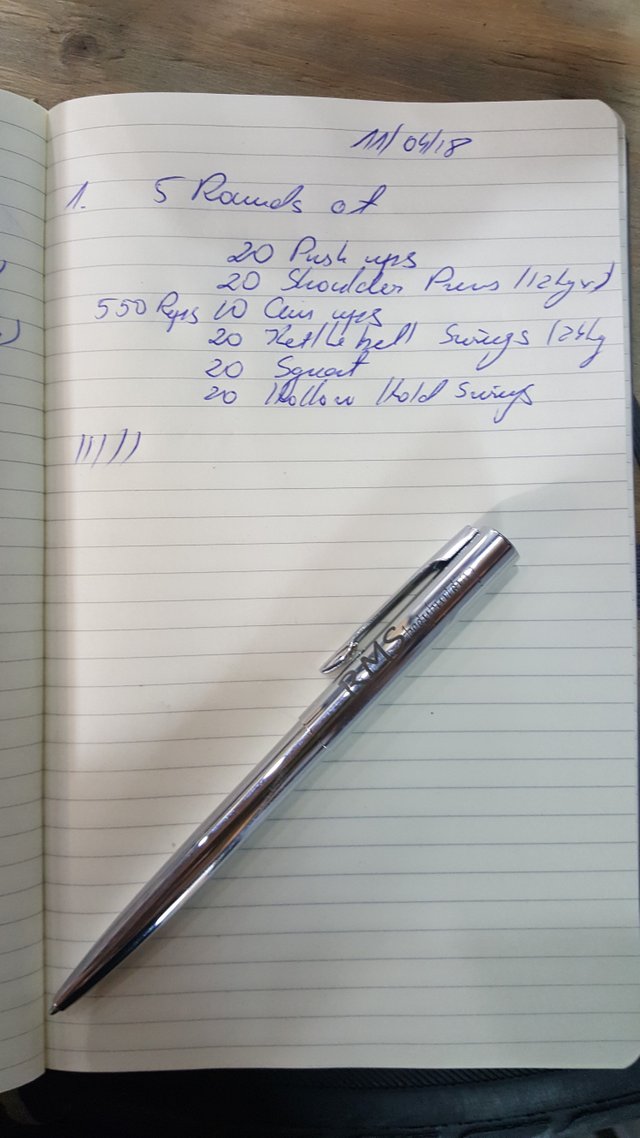 11/04/18
1. 5 Rounds of
20 Push ups
20 Shoulder Press (12kg
550 Reps 10 Cin ups
20 Kettlebell Swings (24kg
20 Squat
20 Hollow Hold Swings
)
)
IIIII
RMS